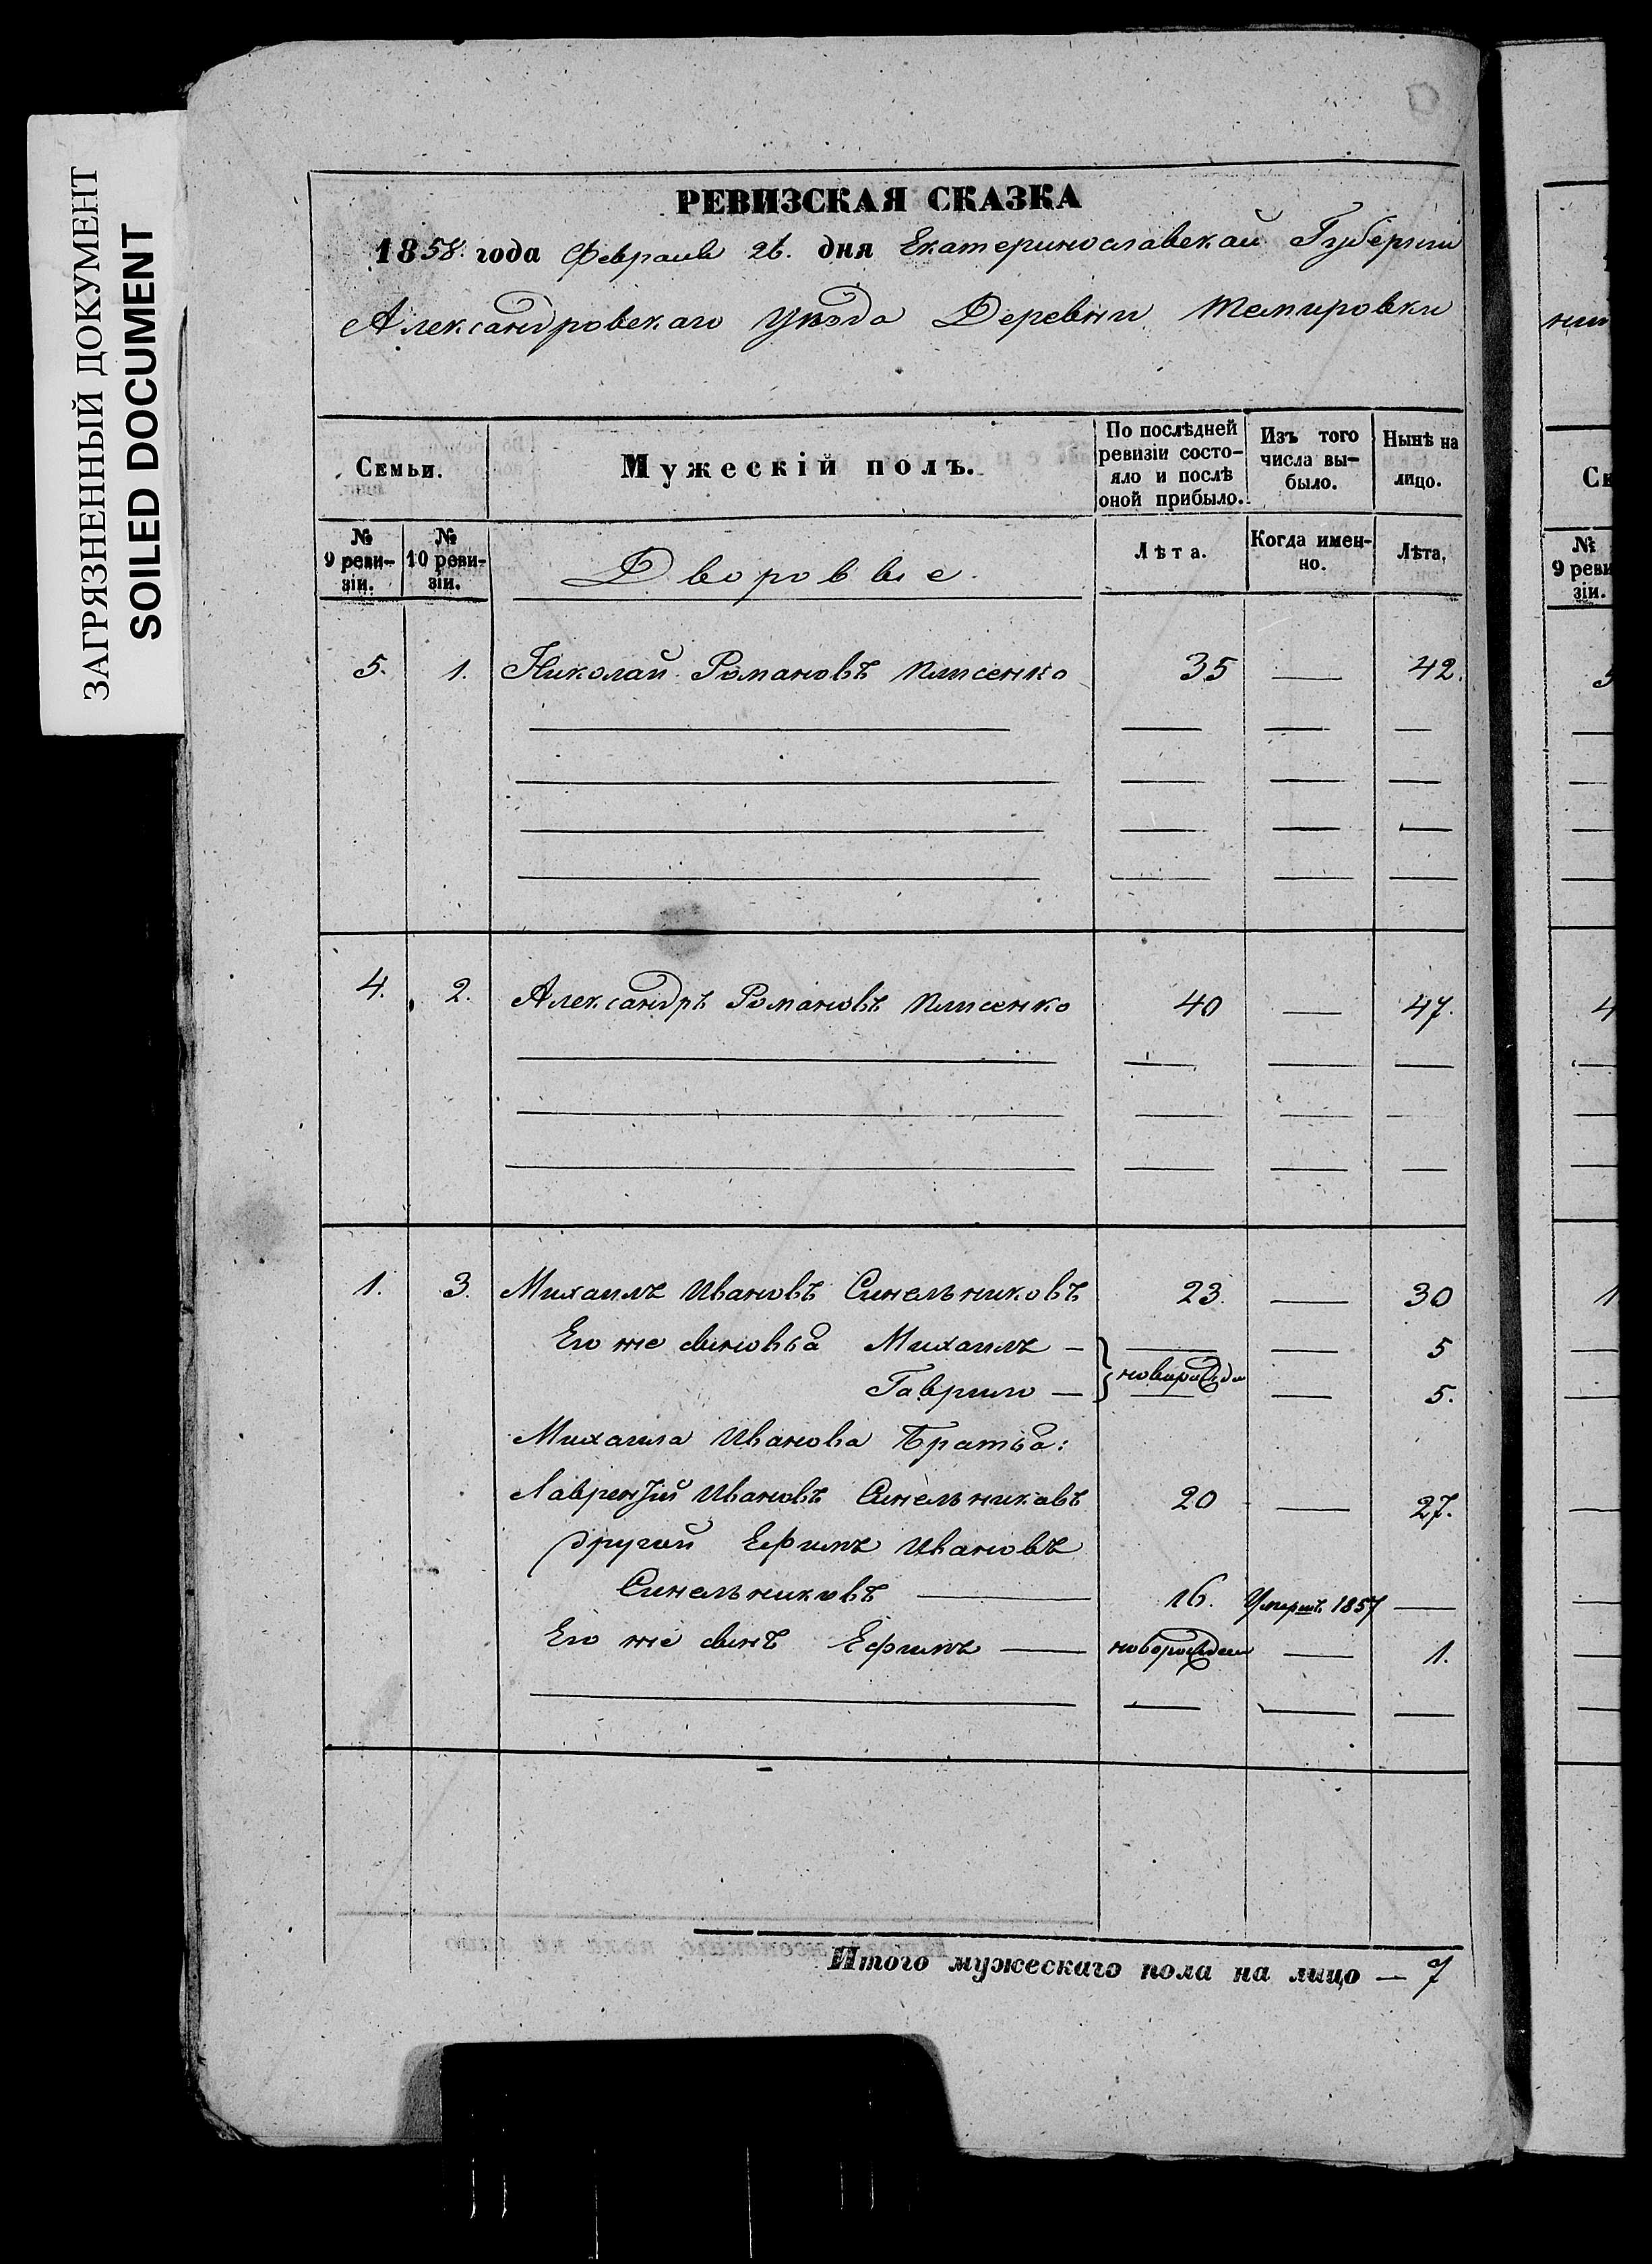 ЗАГРЯЗНЕННЫЙ ДОКУМЕНТ
SOILED DOCUMENT
РЕВИЗСКАЯ СКАЗКА
1858. года Февраля 26. дня Екатеринославской Губерніи
Александровскаго Уѣзда Деревни Темировки
Семьи.
Мужескій полъ.
По послѣдней ревизіи состо-яло и послѣ оной прибыло.
Изъ того числа вы-было.
Нынѣ на лицо.
№ 9 реви-зіи.
№ 10 реви-зіи.
Дворовые.
Лѣта.
Когда имен-но.
Лѣта,
5. 1. Николай Романовъ 35 — 42.
4. 2. Александръ Романовъ 40 — 47.
1. 3. Михаилъ Ивановъ Синельниковъ 23. — 30
Его же сыновья Михаилъ — — — 5
Гаврило — — — 5.
Михаила Иванова Братья:
Лаврентій Ивановъ Синельниковъ 20 — 27.
другой Ефимъ Ивановъ
Синельниковъ — 16. Умеръ 1857 —
Его же сынъ Ефимъ — — 1.
Итого мужескаго пола на лицо — 7
Се
№
9 реви
зіи.